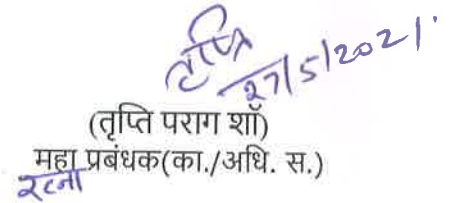 तृप्ति
27/5/2021
(तृप्ति पराग शॉ)
महा प्रबंधक(का./अधि. स.)
रत्ना